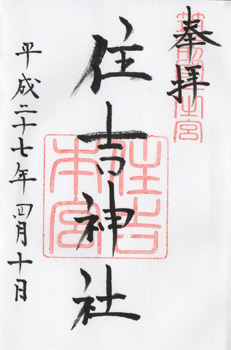 奉拝
住吉神社
平成二十七年四月十日
住吉本宮